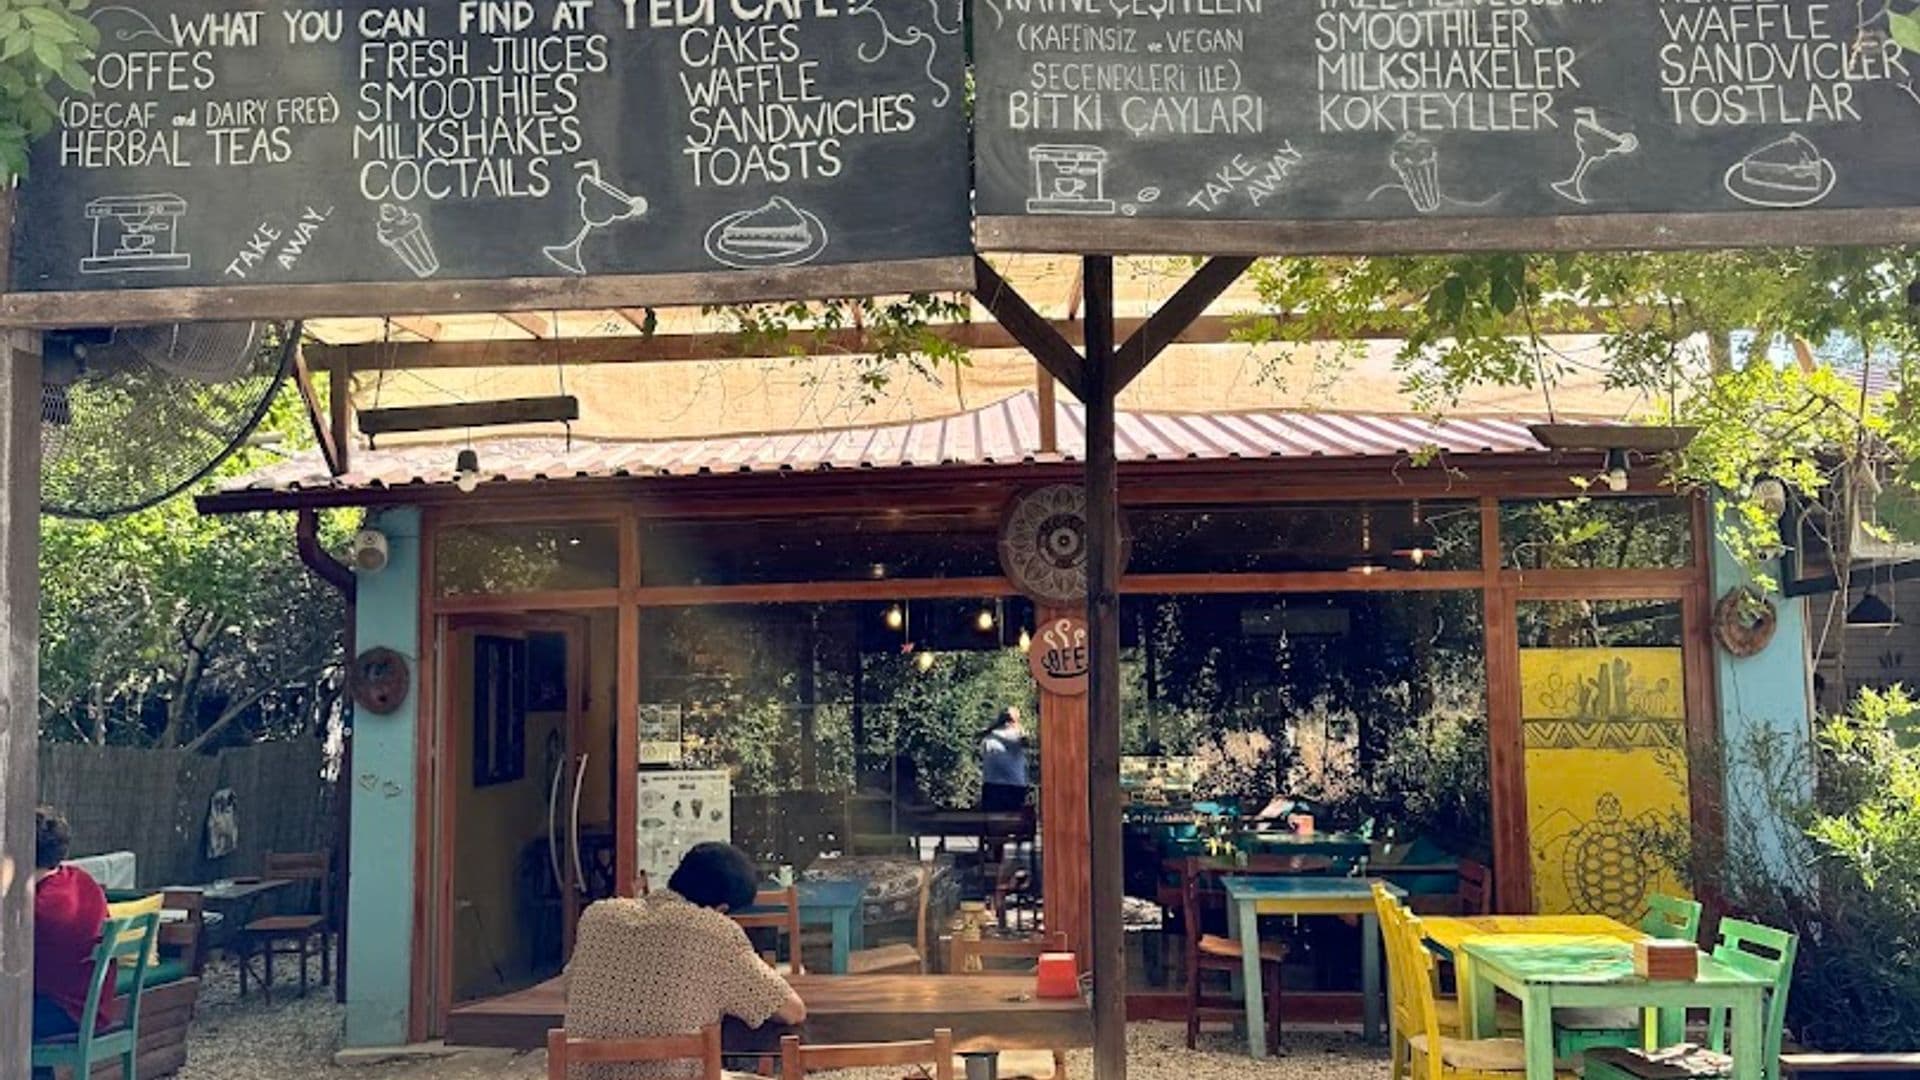 WHAT YOU CAN FIND AT YEDI CAFE?
COFFES
(DECAF and DAIRY FREE)
HERBAL TEAS
FRESH JUICES
SMOOTHIES
MILKSHAKES
COCTAILS
CAKES
WAFFLE
SANDWICHES
TOASTS
TAKE
AWAY..
KAHVE ÇEŞİTLERİ
(KAFEİNSİZ ve VEGAN
SEÇENEKLERİ İLE)
BİTKİ ÇAYLARI
SMOOTHİLER
MILKSHAKELER
KOKTEYLLER
WAFFLE
SANDVİCLER
TOSTLAR
TAKE
AWAY